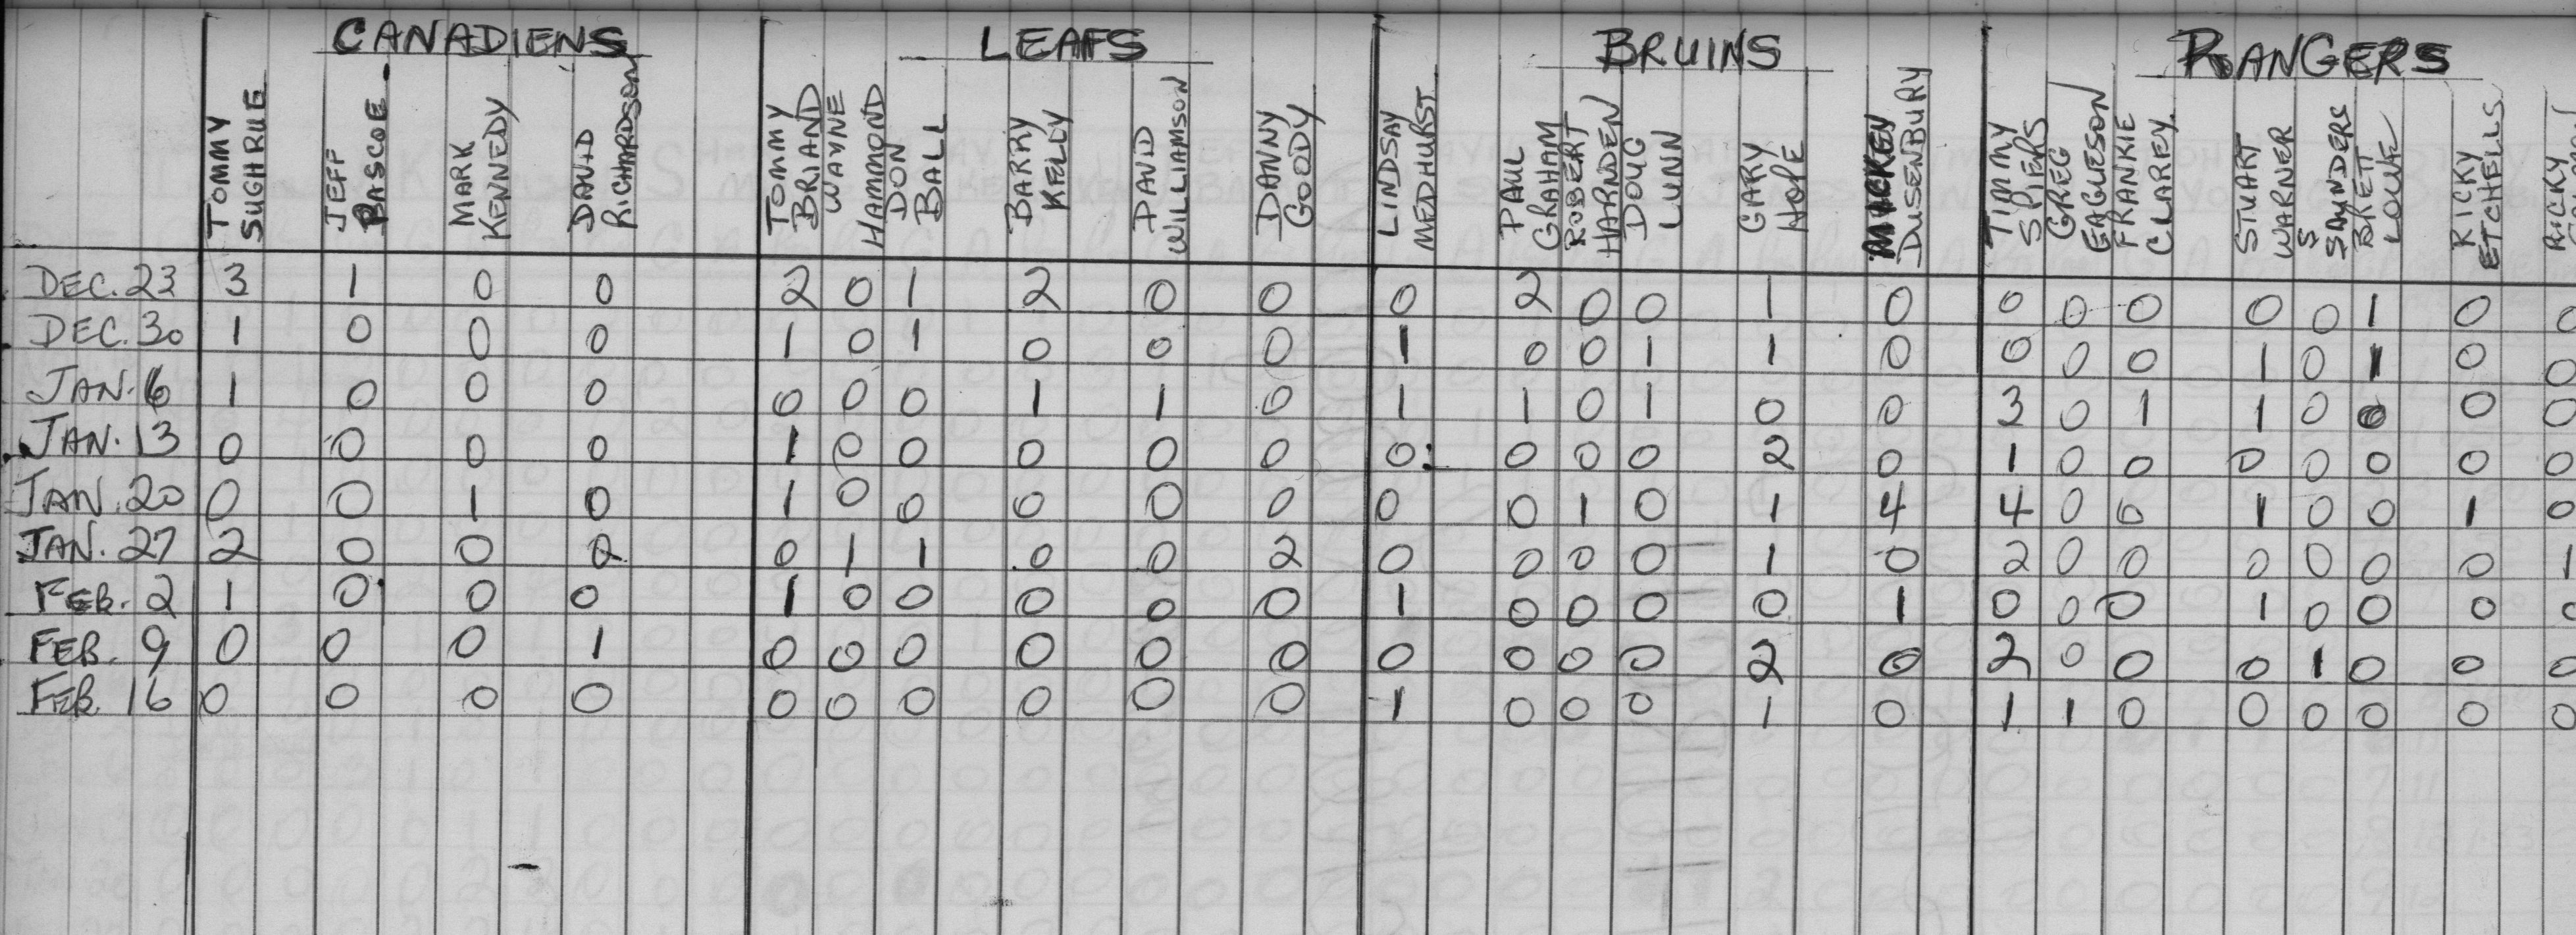 CANADIENS LEAFS BRUINS RANGERS
TOMMY SUGHRUE JEFF PASCOE MARK KENNEDY DAVID RICHARDSON TOMMY BRIAND WAYNE HAMMOND DON BALL BARRY KELLY DAVID WILLIAMSON DANNY GOODY LINDSAY MEDHURST PAUL GRAHAM ROBERT HARNDEN DOUG LUNN GARY HOPE DUSENBURY TIMMY SPIERS GREG EAGLESON FRANKIE CLAREY STUART WARNER S SAUNDERS BRETT LOUKE RICKY ETCHELLS RICKY
DEC. 23 3 1 0 0 2 0 1 2 0 0 0 2 0 0 1 0 0 0 0 0 0 1 0 0
DEC. 30 1 0 0 0 1 0 1 0 0 0 1 0 0 1 1 0 0 0 0 1 0 1 0 0
JAN. 6 1 0 0 0 0 0 0 1 1 0 1 1 0 1 0 0 3 0 1 1 0 0 0 0
JAN. 13 0 0 0 0 1 0 0 0 0 0 0 0 0 0 2 0 1 0 0 0 0 0 0 0
JAN. 20 0 0 1 0 1 0 0 0 0 0 0 0 1 0 1 4 4 0 0 1 0 0 1 0
JAN. 27 2 0 0 2 0 1 1 0 0 2 0 0 0 0 1 0 2 0 0 0 0 0 0 1
FEB. 2 1 0 0 0 1 0 0 0 0 0 1 0 0 0 0 1 0 0 0 1 0 0 0 0
FEB. 9 0 0 0 1 0 0 0 0 0 0 0 0 0 0 2 0 2 0 0 0 1 0 0 0
FEB. 16 0 0 0 0 0 0 0 0 0 0 1 0 0 0 1 0 1 1 0 0 0 0 0 0